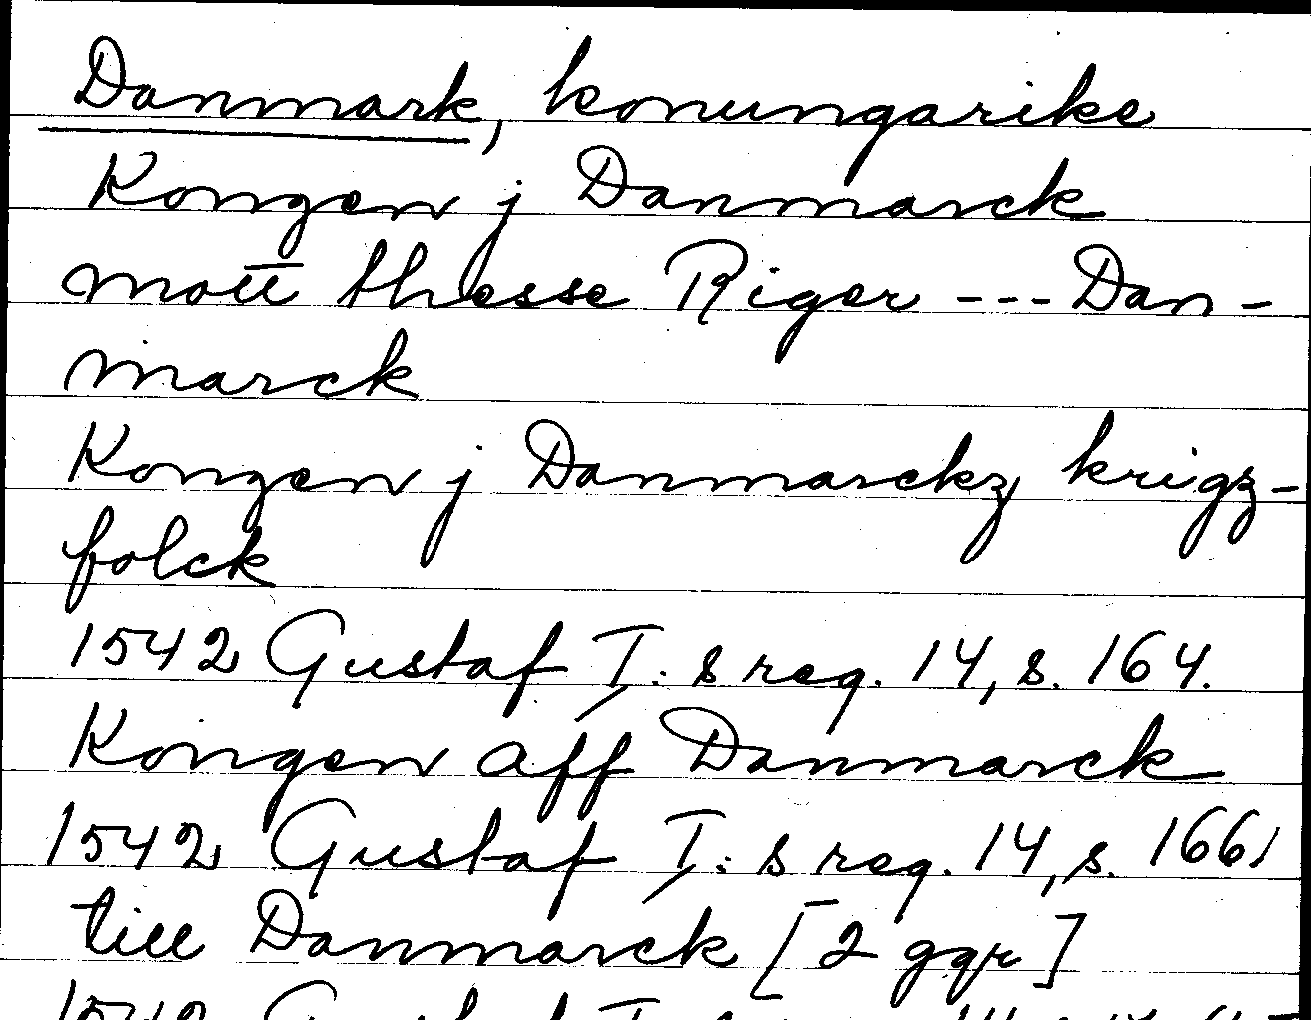 Danmark, konungarike
Kongen j Danmarck
mott thesse Riger --- Dan-
marck
Kongen j Danmarckz krigz-
folck
1542 Gustaf I: s reg. 14, s. 164.
Kongen aff Danmarck
1542 Gustaf I: s reg. 14, s. 166,
till Danmarck [2 ggr]
1542 Gustaf I: s reg. 14